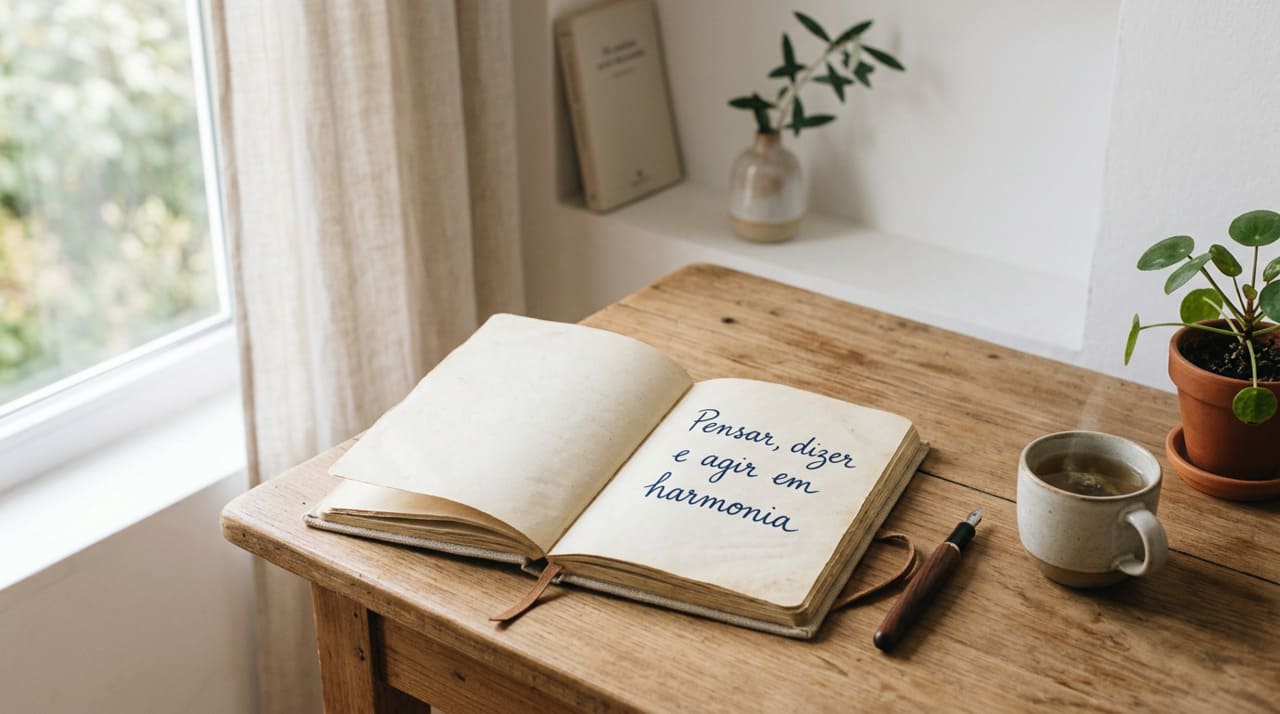 Pensar, dizer
e agir em
harmonia